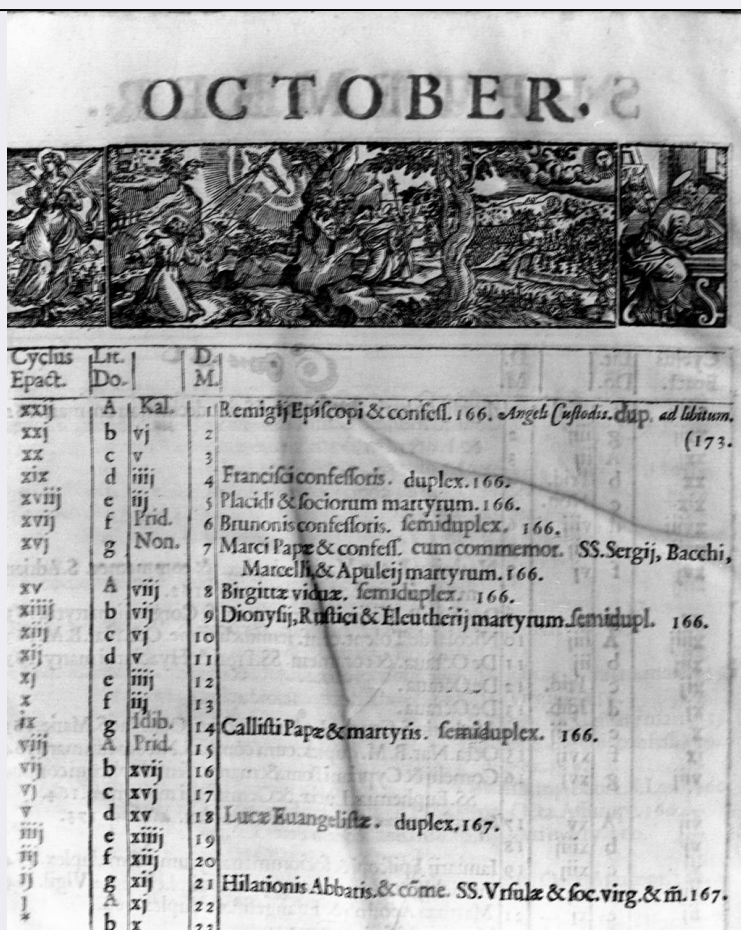 OCTOBER.
Cyclus Lit. D.
Epact. Do. M.
xxij A Kal. 1 Remigij Epiſcopi & confeſſ. 166. Angeli Cuſtodis. dup. ad libitum.
xxj b vj 2 (173.
xx c v 3
xix d iiij 4 Franciſci confeſſoris. duplex. 166.
xviij e iij 5 Placidi & ſociorum martyrum. 166.
xvij f Prid. 6 Brunonis confeſſoris. ſemiduplex. 166.
xvj g Non. 7 Marci Papæ & confeſſ. cum commemor. SS. Sergij, Bacchi,
Marcelli, & Apuleij martyrum. 166.
xv A viij 8 Birgittæ viduæ. ſemiduplex. 166.
xiiij b vij 9 Dionyſij, Ruſtici & Eleutherij martyrum. ſemidupl. 166.
xiij c vj 10
xij d v 11
xj e iiij 12
x f iij 13
ix g Idib. 14 Calliſti Papæ & martyris. ſemiduplex. 166.
viij A Prid. 15
vij b xvij 16
vj c xvj 17
v d xv 18 Lucæ Euangeliſtæ. duplex. 167.
iiij e xiiij 19
iij f xiij 20
ij g xij 21 Hilarionis Abbatis. & cõme. SS. Vrſulæ & ſoc. virg. & m̃. 167.
j A xj 22
* b x 23